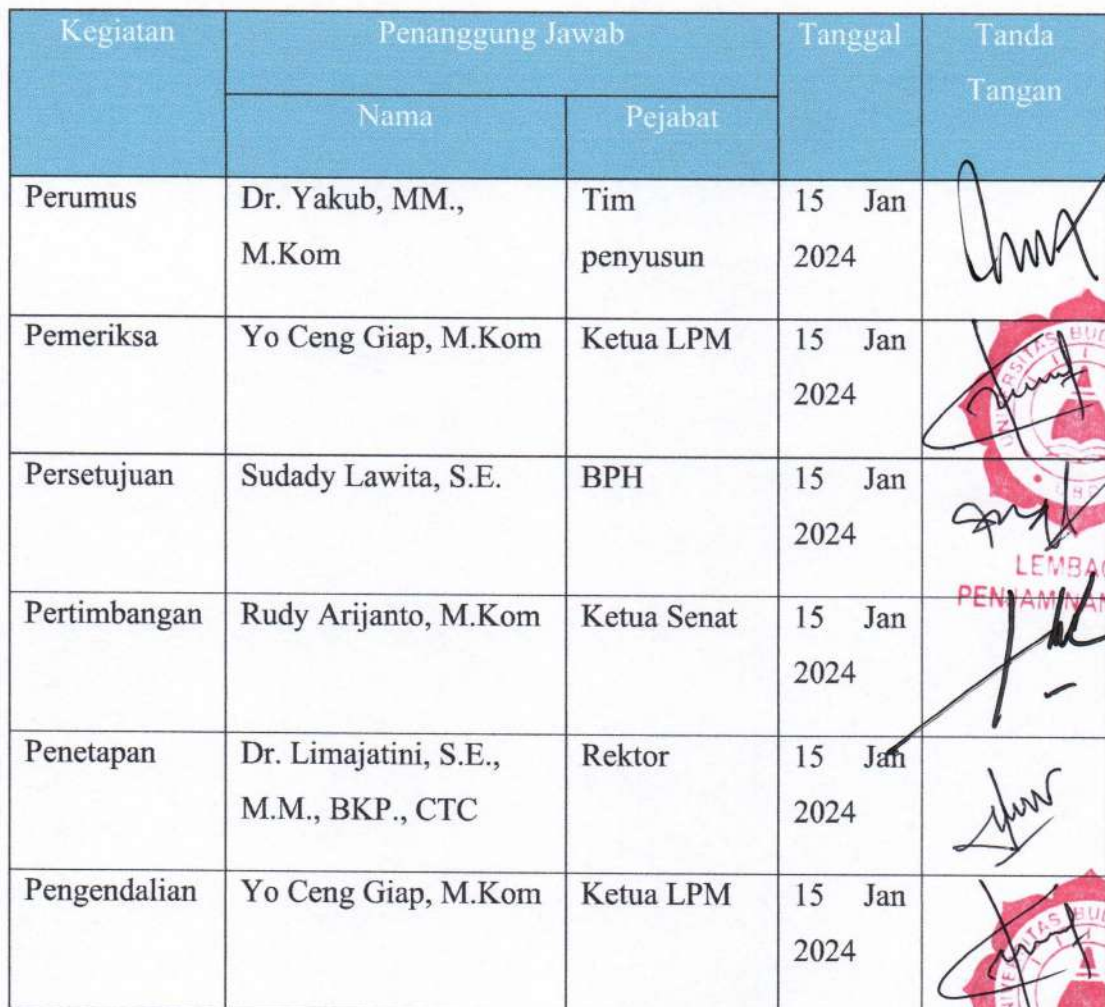 Kegiatan Penanggung Jawab Tanggal Tanda
Tangan
Nama Pejabat
Perumus Dr. Yakub, MM., Tim 15 Jan
M.Kom penyusun 2024
Pemeriksa Yo Ceng Giap, M.Kom Ketua LPM 15 Jan
2024
Persetujuan Sudady Lawita, S.E. BPH 15 Jan
2024
LEMBAG
PENJAMINAN
Pertimbangan Rudy Arijanto, M.Kom Ketua Senat 15 Jan
2024
Penetapan Dr. Limajatini, S.E., Rektor 15 Jan
M.M., BKP., CTC 2024
Pengendalian Yo Ceng Giap, M.Kom Ketua LPM 15 Jan
2024